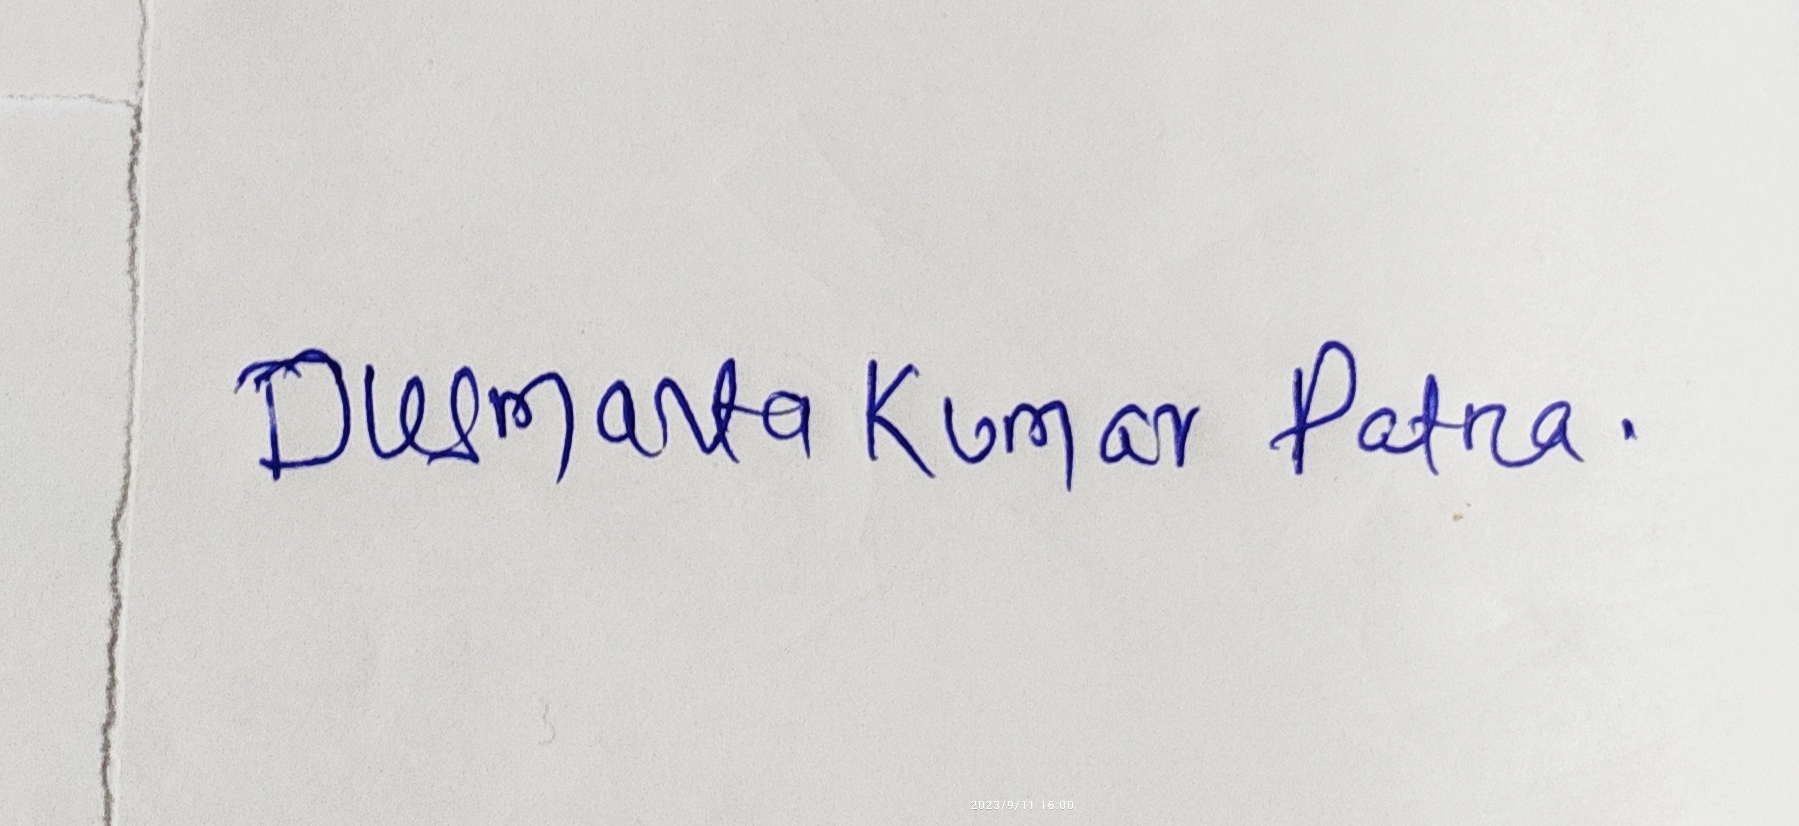 Dusmanta Kumar Patra.
2023/9/11 16:00